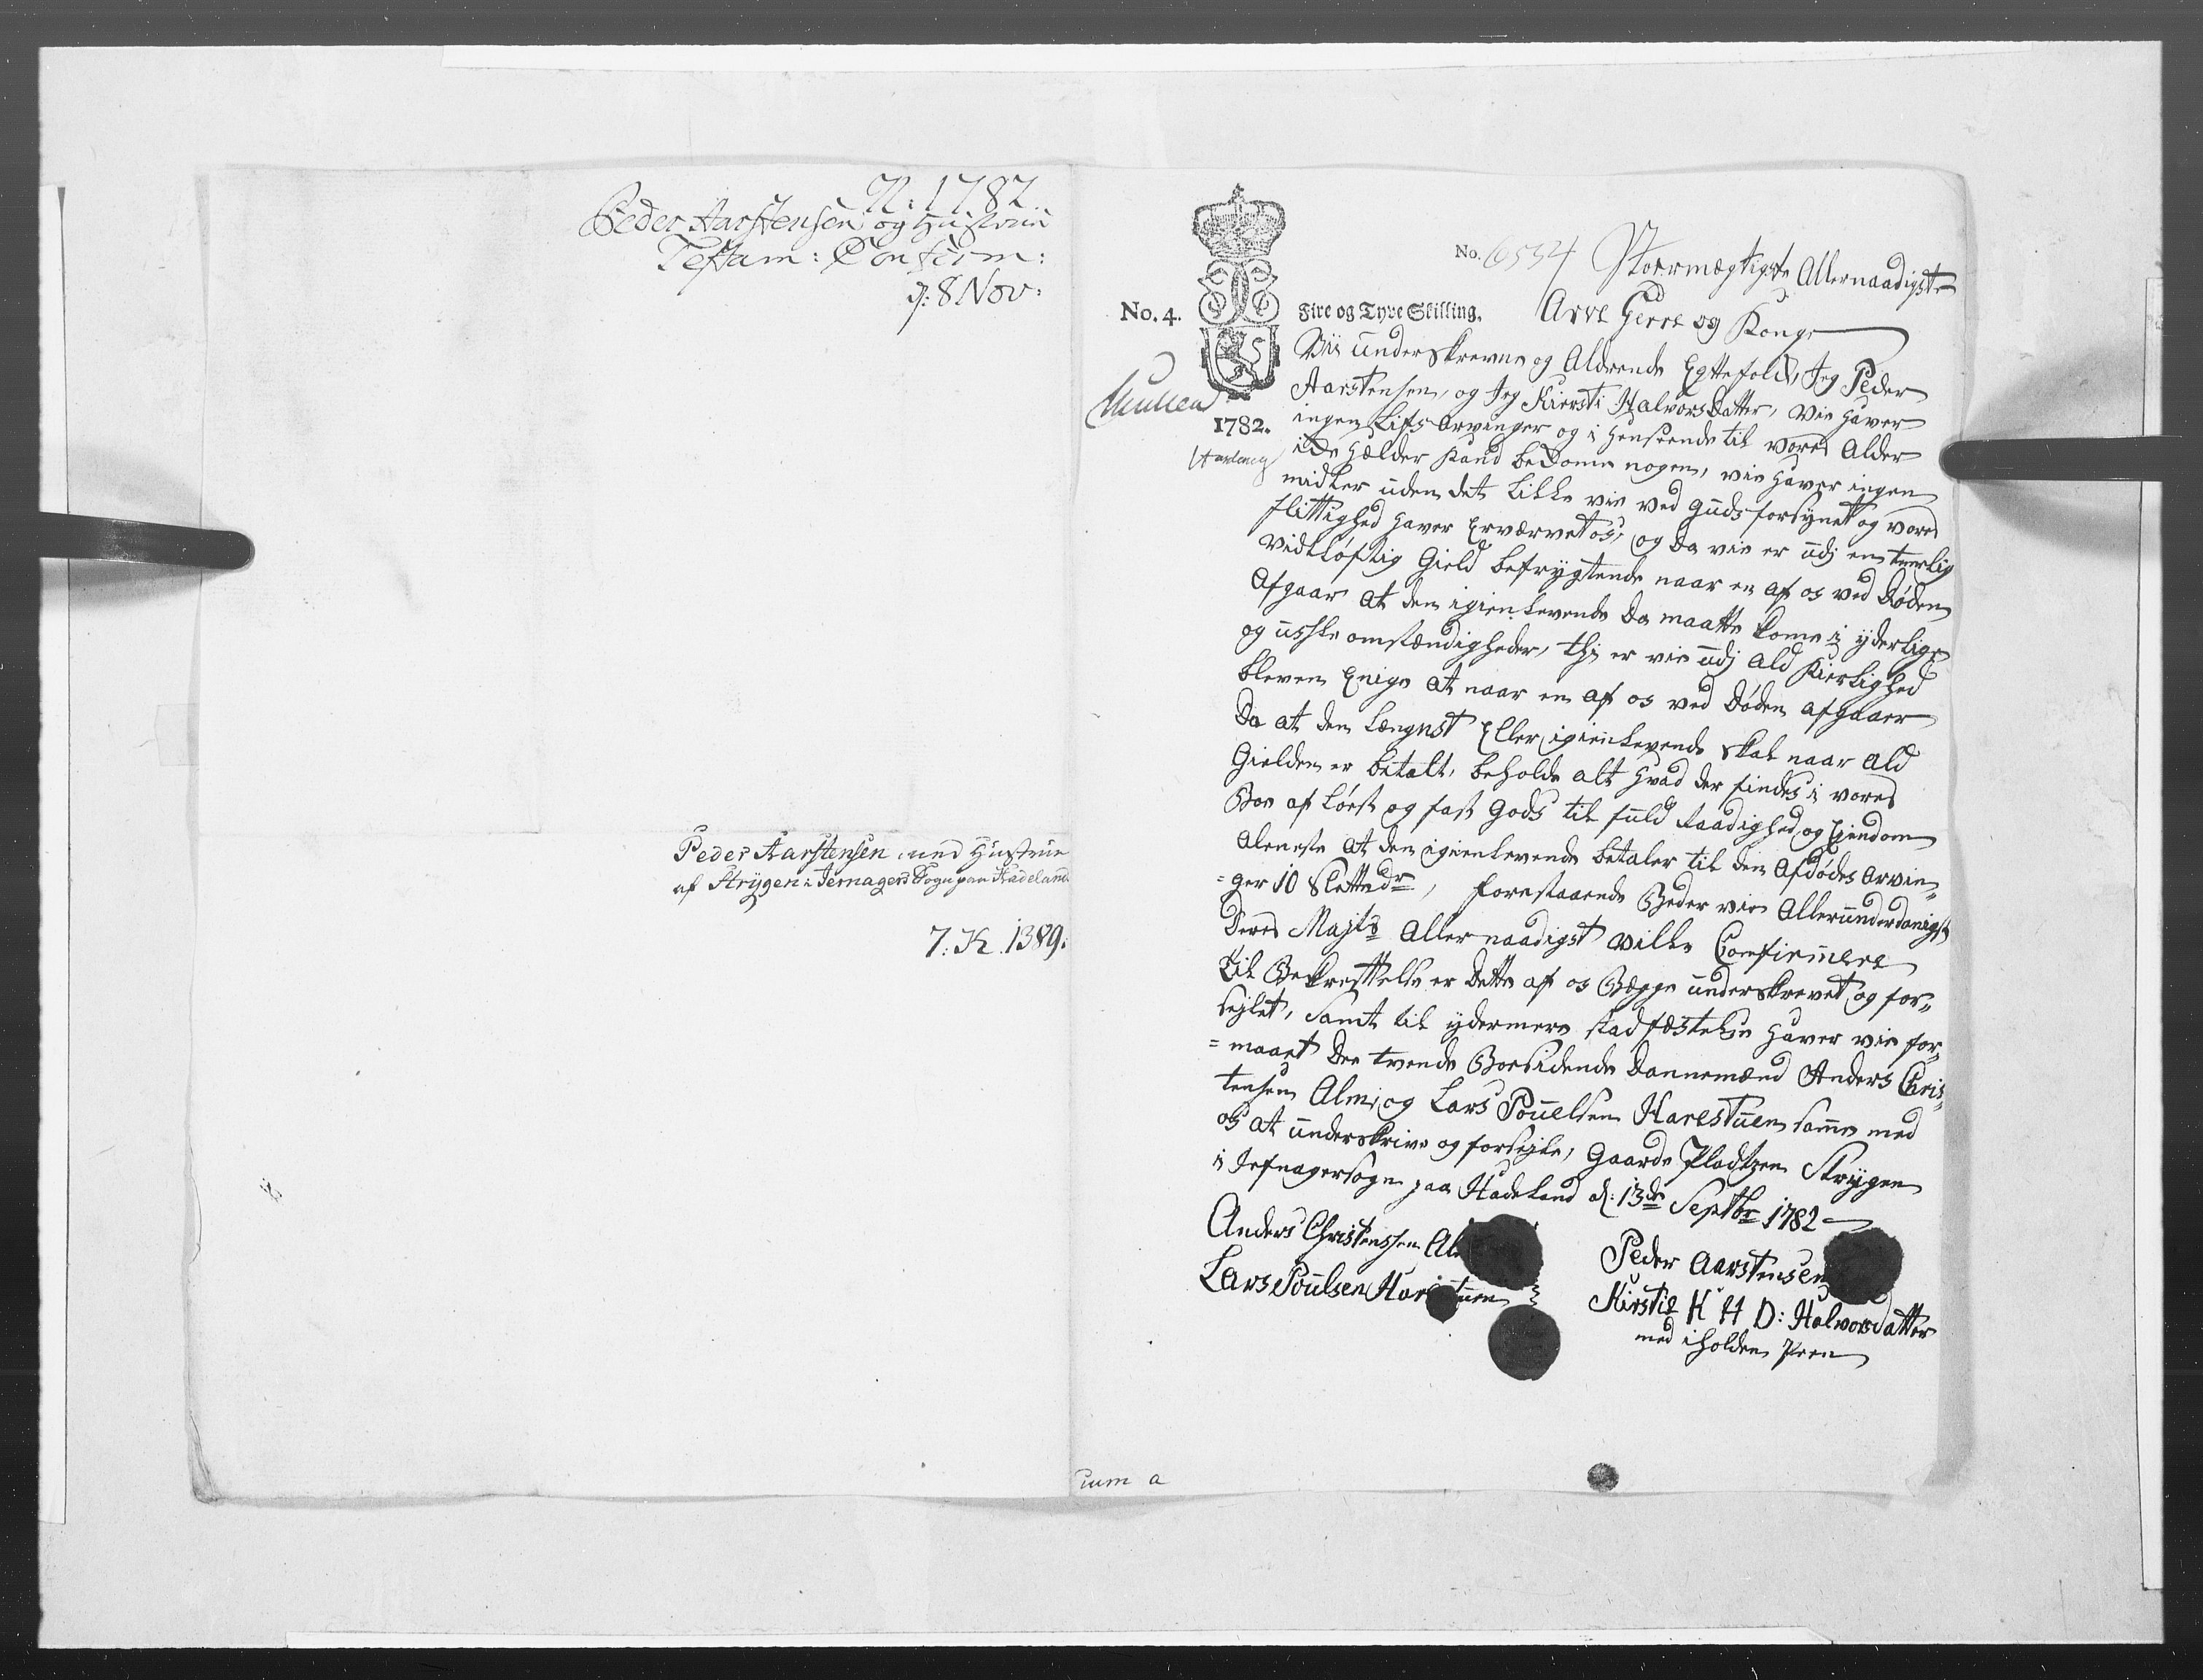 N: 1782.
Peder Aarstensen og Hustrue
Testam: Confirm:
d: 8 Nov:
Peder Aarstensen med Hustrue
af Strygen i Jernagers Sogn paa Hadeland
7. K. 1389.
No. 6534
Stormægtigste Allernaadigste
No. 4.
Fire og Tyve Skilling.
Arve Herre og Konge
1782.
Vii underskrevne og Aldrende Egtefolk, Jeg Peder
Aarstensen, og Jeg Kiersti Halvorsdatter, vie haver
ingen Lifs Arvinger og i henseende til vores Alder
ide hælder kand bekome nogen, vie haver ingen
midler uden det lille vie ved Guds forsynet og vores
flittighed haver Erværvet os, og da vie er udj en temlig
vidtløftig Gield befrygtende naar en af os ved Døden
afgaar at den igienlevende da maatte kome i yderlige
og usle omstændigheder, thi er vie udj ald kierlighed
bleven Enige at naar en af os ved Døden afgaaer
da at den Længst Eller igienlevende skal naar ald
Gielden er betalt, beholde alt hvad der findes i vores
Boe af Løst og fast Gods til fuld Raadighed og Eiendom
alleneste at den igienlevende betaler til den Afdødes Arvin„
=ger 10 Slettedr, forestaaende Beder vie Allerunderdanigst
Deres Majts Allernaadigst ville Confirmere
til Bekræftelse er dette af os Begge underskrevet og for„
seglet, samt til ydermere stadfæstelse haver vie for„
=maaet de tvende Boesidende Dannemænd Anders Chris„
tensen Alm, og Lars Pouelsen Harestuen same med
os at underskrive og forsegle, Gaarde Pladtzen Strygen
i Jefnagersogn paa Hadeland d: 13de Septbr 1782
Anders Christenssen
Peder Aarstensen
Lars Poulsen Harestuen
Kirstie K H D: Halvorsdatter
med iholden Pen